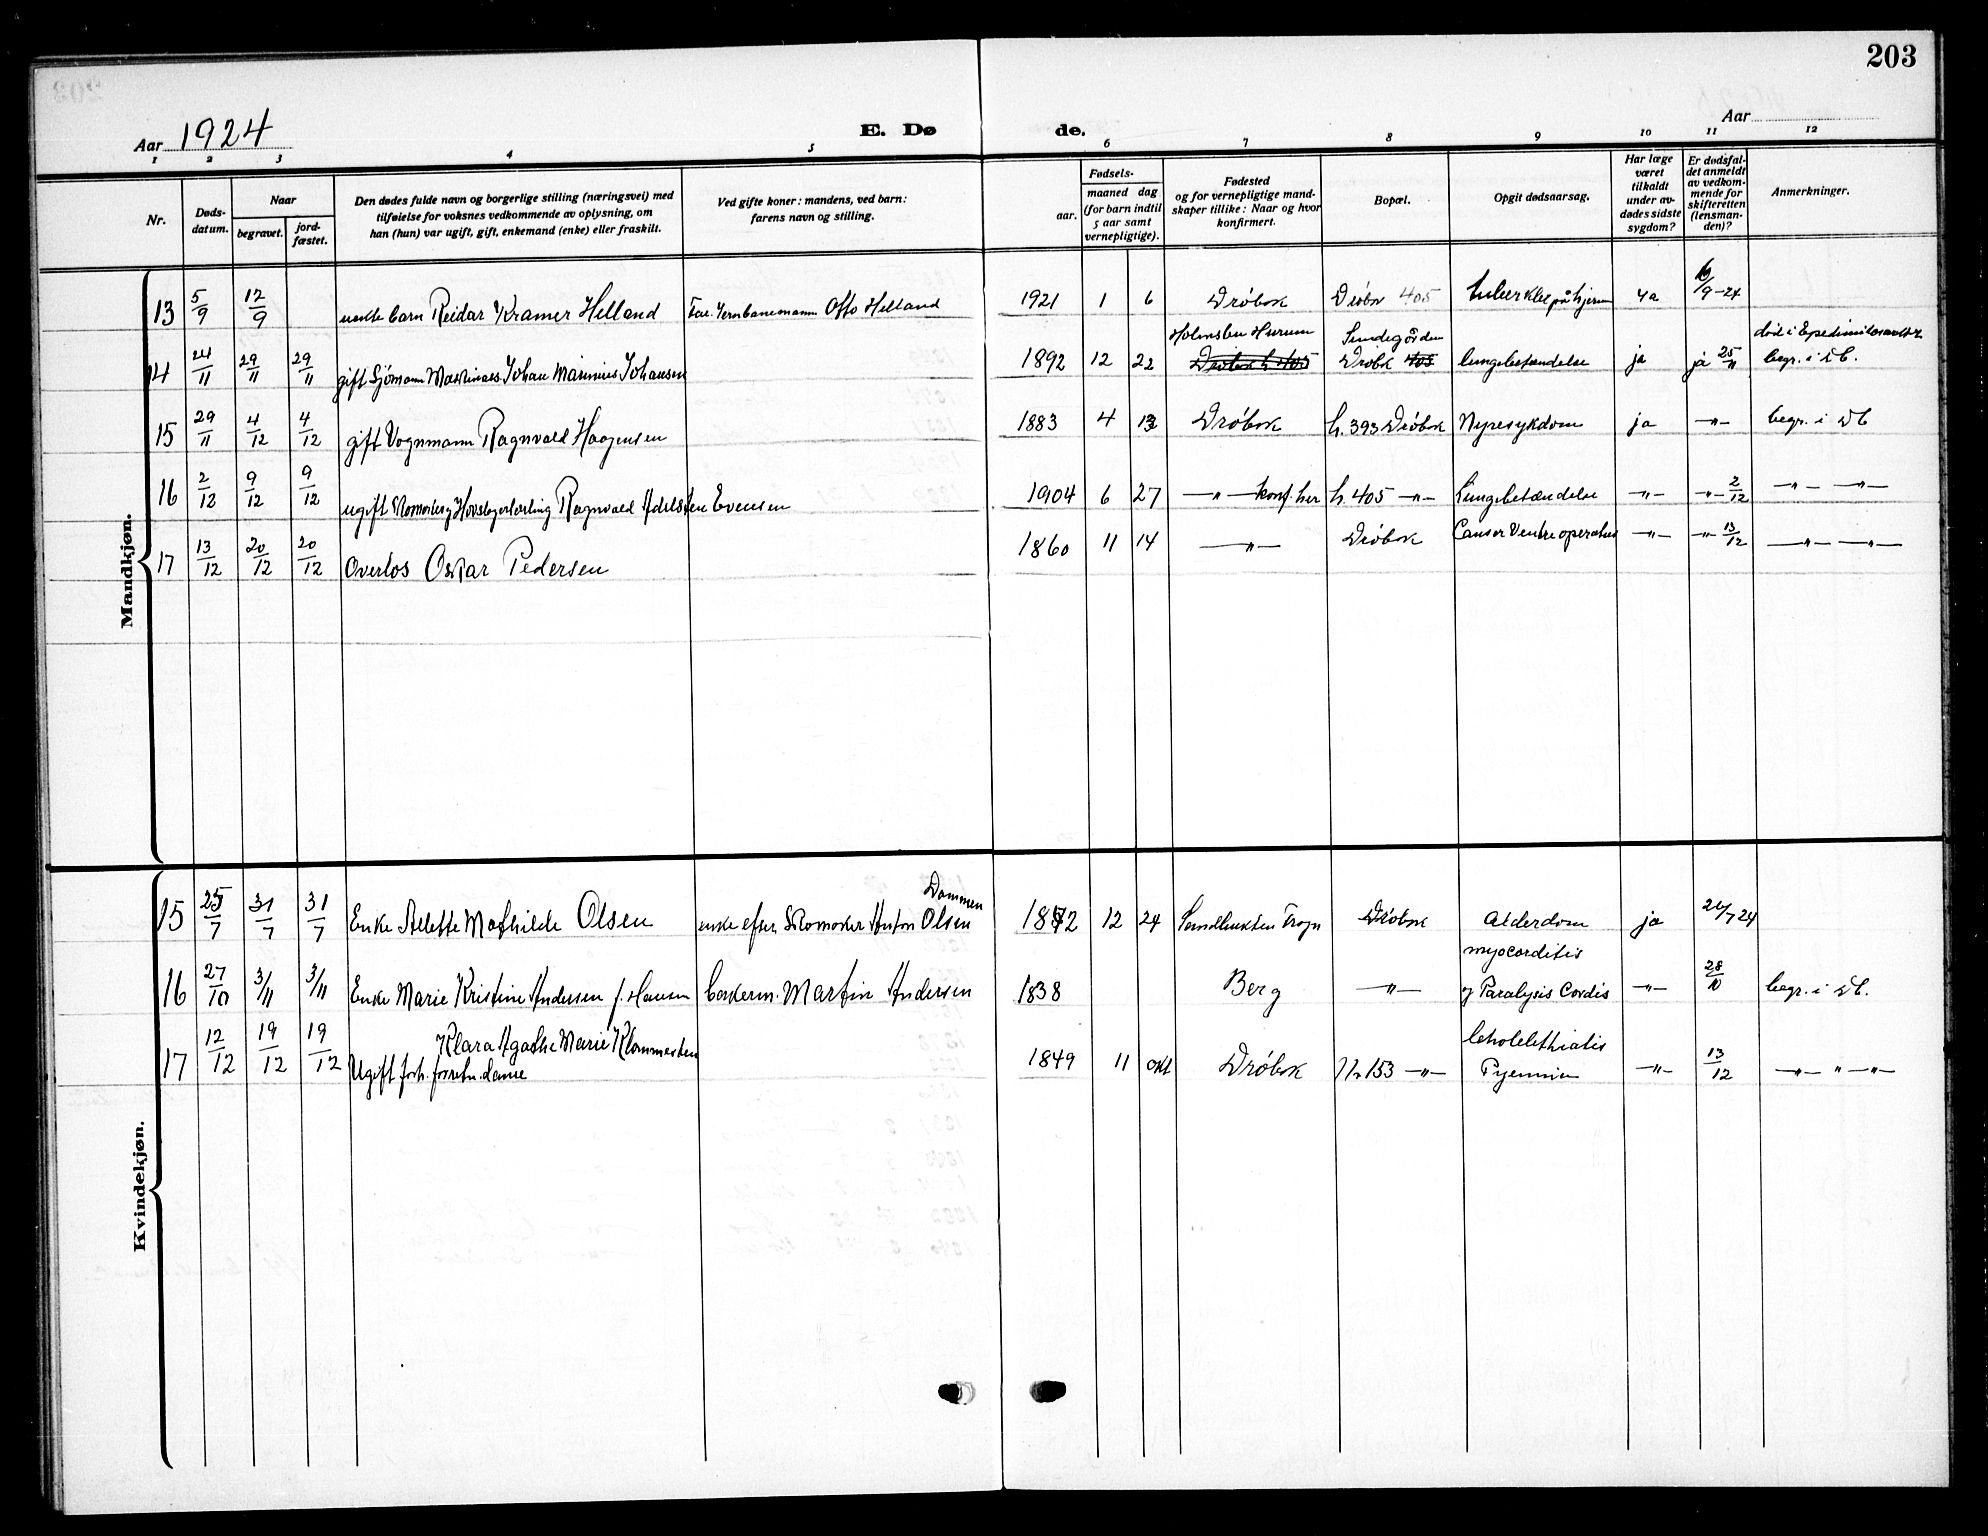 203
Aar 1924
E. Dø
de.
Aar
1 2 3 4 5 6 7 8 9 10 11 12
Nr.
Døds-
datum.
Naar
begravet.
jord-
fæstet.
Den dødes fulde navn og borgerlige stilling (næringsvei) med
tilføielse for voksnes vedkommende av oplysning, om
han (hun) var ugift, gift, enkemand (enke) eller fraskilt.
Ved gifte koner: mandens, ved barn:
farens navn og stilling.
Fødsels-
aar.
maaned dag
(for barn indtil
5 aar samt
vernepligtige).
Fødested
og for vernepligtige mand-
skaper tillike: Naar og hvor
konfirmert.
Bopæl.
Opgit dødsaarsag.
Har læge
været
tilkaldt
under av-
dødes sidste
sygdom?
Er dødsfal-
det anmeldt
av vedkom-
mende for
skifteretten
(lensman-
den)?
Anmerkninger.
Mandkjøn.
13 5/9 12/9 barn Reidar Kramer Helland Far. Jernbanemann Otto Helland 1921 1 6 Drøbak Drøbak 405 tuberkler på hjernen ja 9-24
Holmsbu Hurum Sundegården
14 24/11 29/11 29/11 gift Sjömann Johan Marinius Johansen 1892 12 22 Drøbak h. 405 Drøbk 405 lungebetændelse ja ja 25/11 begr. i Db.
15 29/11 4/12 4/12 gift Vognmann Ragnvald Haagensen 1883 4 Drøbak h. 393 Drøbak Nyresykdom ja —"— begr. i Db
16 2/12 9/12 9/12 ugift Hovslagerlærling Ragnvald Adelsten Evensen 1904 6 27 —"— konf. her h. 405 —"— Lungebetændelse —"— —"— 2/12 —"— —"—
17 13/12 20/12 20/12 Overlos Oskar Pedersen 1860 11 14 —"— Drøbak Cancer Ventre operatus —"— —"— 13/12 —"— —"—
Kvindekjøn.
Dammen
15 25/7 31/7 31/7 Enke Alette Mathilde Olsen enke efter Skomaker Anton Olsen 12 24 Sandbukten Frogn Drøbak Alderdom ja 7 24
myocarditis
16 27/10 3/11 3/11 Enke Marie Kristine Andersen f. Hansen Martin Andersen 1838 Berg —"— og Paralysis Cordis —"— 28/10 begr. i Db.
Klara Agathe Marie Klommesten
17 12/12 19/12 19/12 Ugift forh. forretn. dame 1849 11 okt Drøbak Nr 153 —"— Pyemia —"— 13/12 —"— " —"—